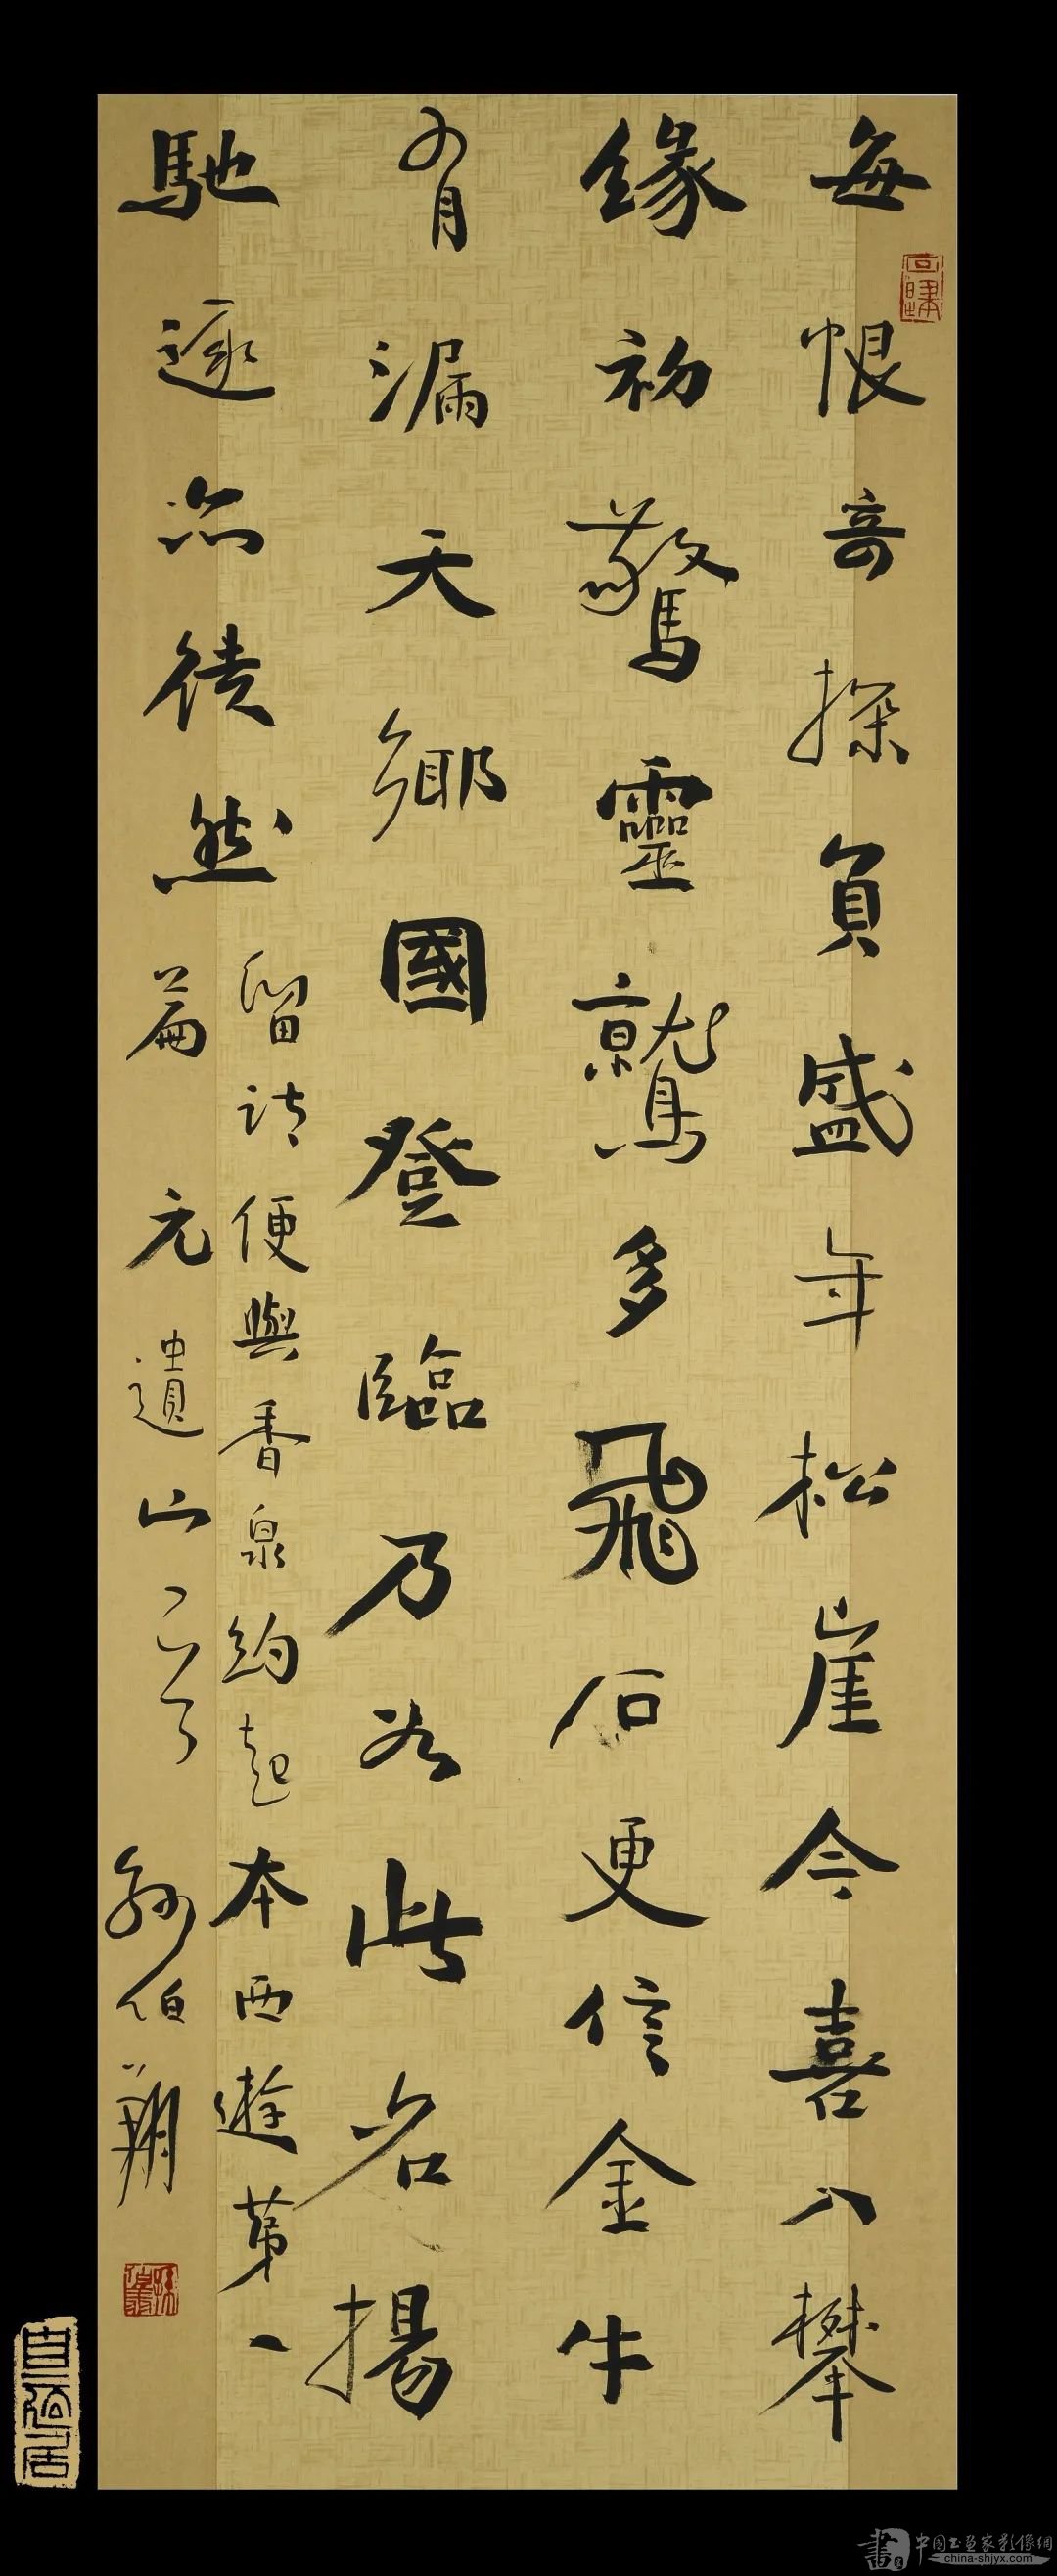 每恨奇探負盛年松崖今喜入攀
緣初驚靈鷲多飛石更信金牛
有漏天鄉國登臨乃如此名揚
馳逐亦徒然留詩便與香泉約起本西遊第一
篇 元遺山句 孫伯翔
中国书画家影像網
china-shjyx.com